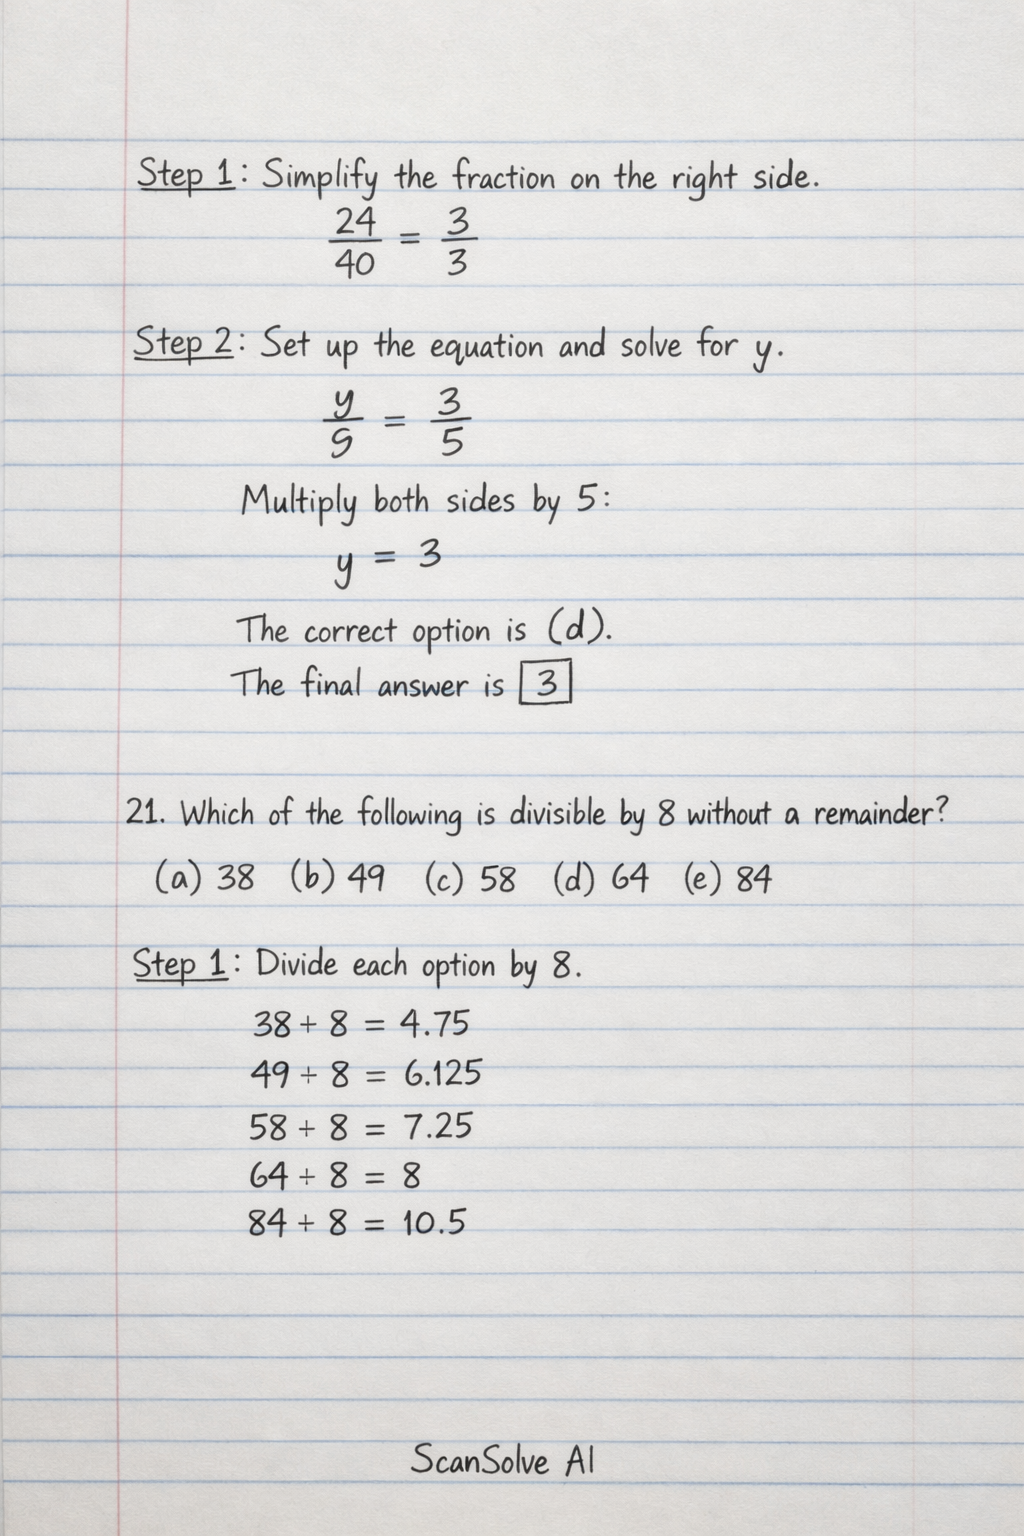 Step 1: Simplify the fraction on the right side.
24/40 = 3/3
Step 2: Set up the equation and solve for y.
y/9 = 3/5
Multiply both sides by 5:
y = 3
The correct option is (d).
The final answer is 3
21. Which of the following is divisible by 8 without a remainder?
(a) 38 (b) 49 (c) 58 (d) 64 (e) 84
Step 1: Divide each option by 8.
38 + 8 = 4.75
49 ÷ 8 = 6.125
58 + 8 = 7.25
64 ÷ 8 = 8
84 + 8 = 10.5
ScanSolve AI